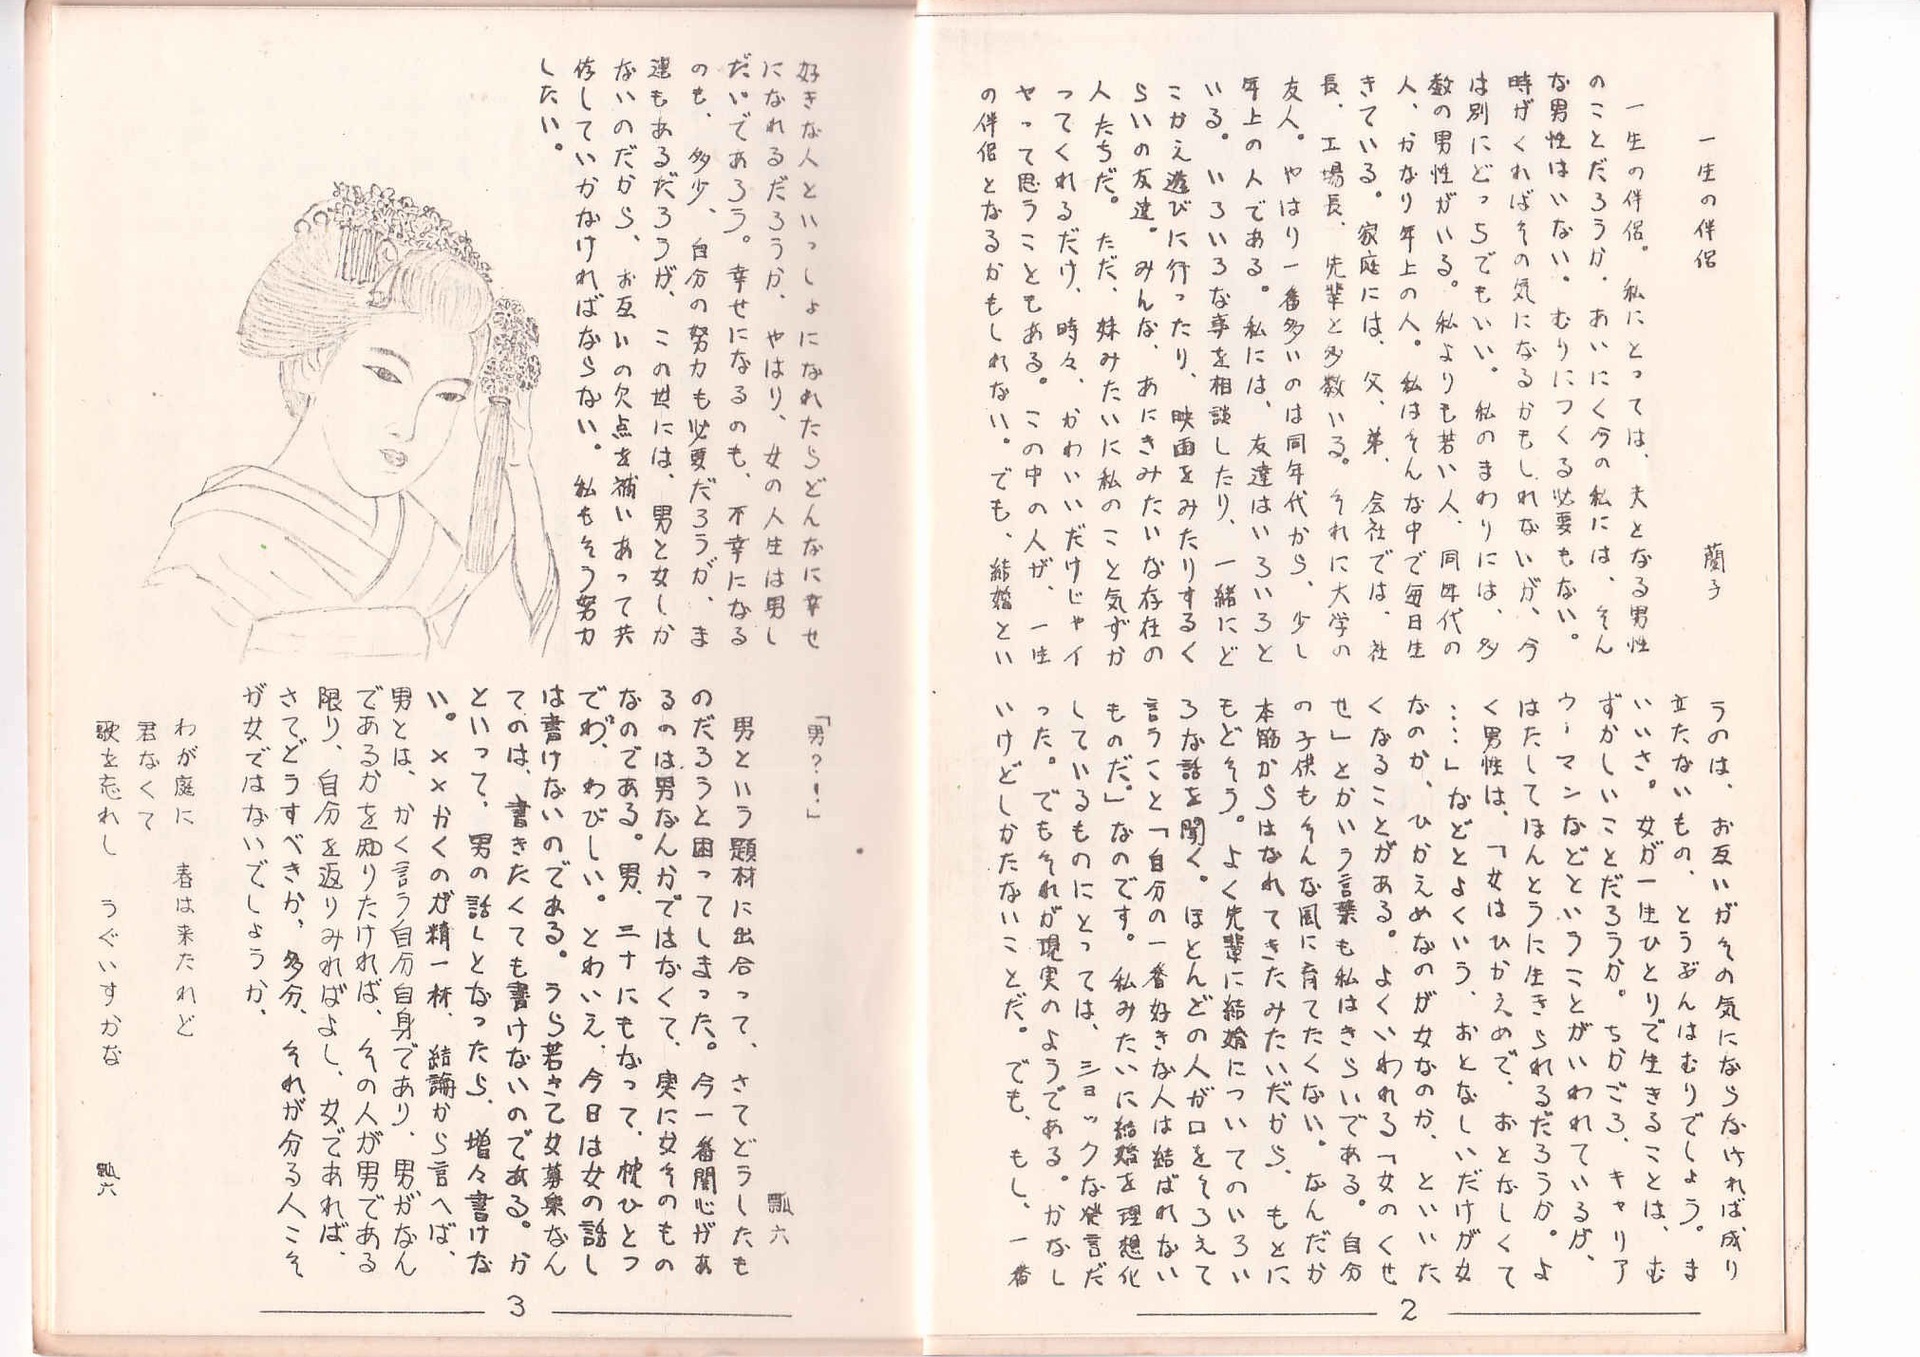 一生の伴侶
蘭子
一生の伴侶。私にとっては、夫となる男性
のことだろうか、あいにく今の私には、そん
な男性はいない。むりにつくる必要もない。
時がくればその気になるかもしれないが、今
は別にどっちでもいい。私のまわりには、多
数の男性がいる。私よりも若い人、同年代の
人、かなり年上の人。私はそんな中で毎日生
きている。家庭には、父、弟、会社では、社
長、工場長、先輩と多数いる。それに大学の
友人。やはり一番多いのは同年代から、少し
年上の人である。私には、友達はいろいろと
いる。いろいろな事を相談したり、一緒にど
こかえ遊びに行ったり、映画をみたりするく
らいの友達。みんな、あにきみたいな存在の
人たちだ。ただ、妹みたいに私のこと気ずか
ってくれるだけ、時々、かわいいだけじゃイ
ヤって思うこともある。この中の人が、一生
の伴侶となるかもしれない。でも、結婚とい
うのは、お互いがその気にならなければ成り
立たないもの、とうぶんはむりでしょう。ま
いいさ。女が一生ひとりで生きることは、む
ずかしいことだろうか。ちかごろ、キャリア
ウーマンなどということがいわれているが、
はたしてほんとうに生きられるだろうか。よ
く男性は、「女はひかえめで、おとなしくて
……」などとよくいう、おとなしいだけが女
なのか、ひかえめなのが女なのか、といいた
くなることがある。よくいわれる「女のくせ
せ」とかいう言葉も私はきらいである。自分
の子供もそんな風に育てたくない。なんだか
本筋からはなれてきたみたいだから、もとに
もどそう。よく先輩に結婚についてのいろい
ろな話を聞く。ほとんどの人が口をそろえて
言うこと「自分の一番好きな人は結ばれない
ものだ。」なのです。私みたいに結婚を理想化
しているものにとっては、ショックな発言だ
った。でもそれが現実のようである。かなし
いけどしかたないことだ。でも、もし、一番
2
好きな人といっしょになれたらどんなに幸せ
になれるだろうか、やはり、女の人生は男し
だいであろう。幸せになるのも、不幸になる
のも、多少、自分の努力も必要だろうが、ま
運もあるだろうが、この世には、男と女しか
ないのだから、お互いの欠点を補いあって共
存していかなければならない。私もそう努力
したい。
「男?!」
瓢六
男という題材に出合って、さてどうしたも
のだろうと困ってしまった。今一番関心があ
るのは男なんかではなくて、実に女そのもの
なのである。男、三十にもなって、枕ひとつ
でわ、わびしい。とわいえ、今日は女の話し
は書けないのである。うら若き乙女募集なん
てのは、書きたくても書けないのである。か
といって、男の話しとなったら、増々書けな
い。××かくのが精一杯、結論から言へば、
男とは、かく言う自分自身であり、男がなん
であるかを知りたければ、その人が男である
限り、自分を返りみればよし、女であれば、
さてどうすべきか、多分、それが分る人こそ
が女ではないでしょうか、
わが庭に 春は来たれど
君なくて
歌を忘れし うぐいすかな
瓢六
3